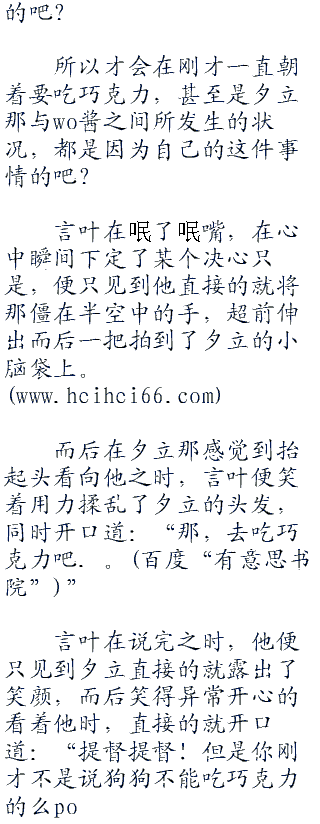 的吧？
所以才会在刚才一直朝
着要吃巧克力，甚至是夕立
那与wo酱之间所发生的状
况，都是因为自己的这件事
情的吧？
言叶在呡了呡嘴，在心
中瞬间下定了某个决心只
是，便只见到他直接的就将
那僵在半空中的手，超前伸
出而后一把拍到了夕立的小
脑袋上。
(www.hcihci66.com)
而后在夕立那感觉到抬
起头看向他之时，言叶便笑
着用力揉乱了夕立的头发，
同时开口道：“那，去吃巧
克力吧．。(百度“有意思书
院”)”
言叶在说完之时，他便
只见到夕立直接的就露出了
笑颜，而后笑得异常开心的
看着他时，直接的就开口
道：“提督提督！但是你刚
才不是说狗狗不能吃巧克力
的么po